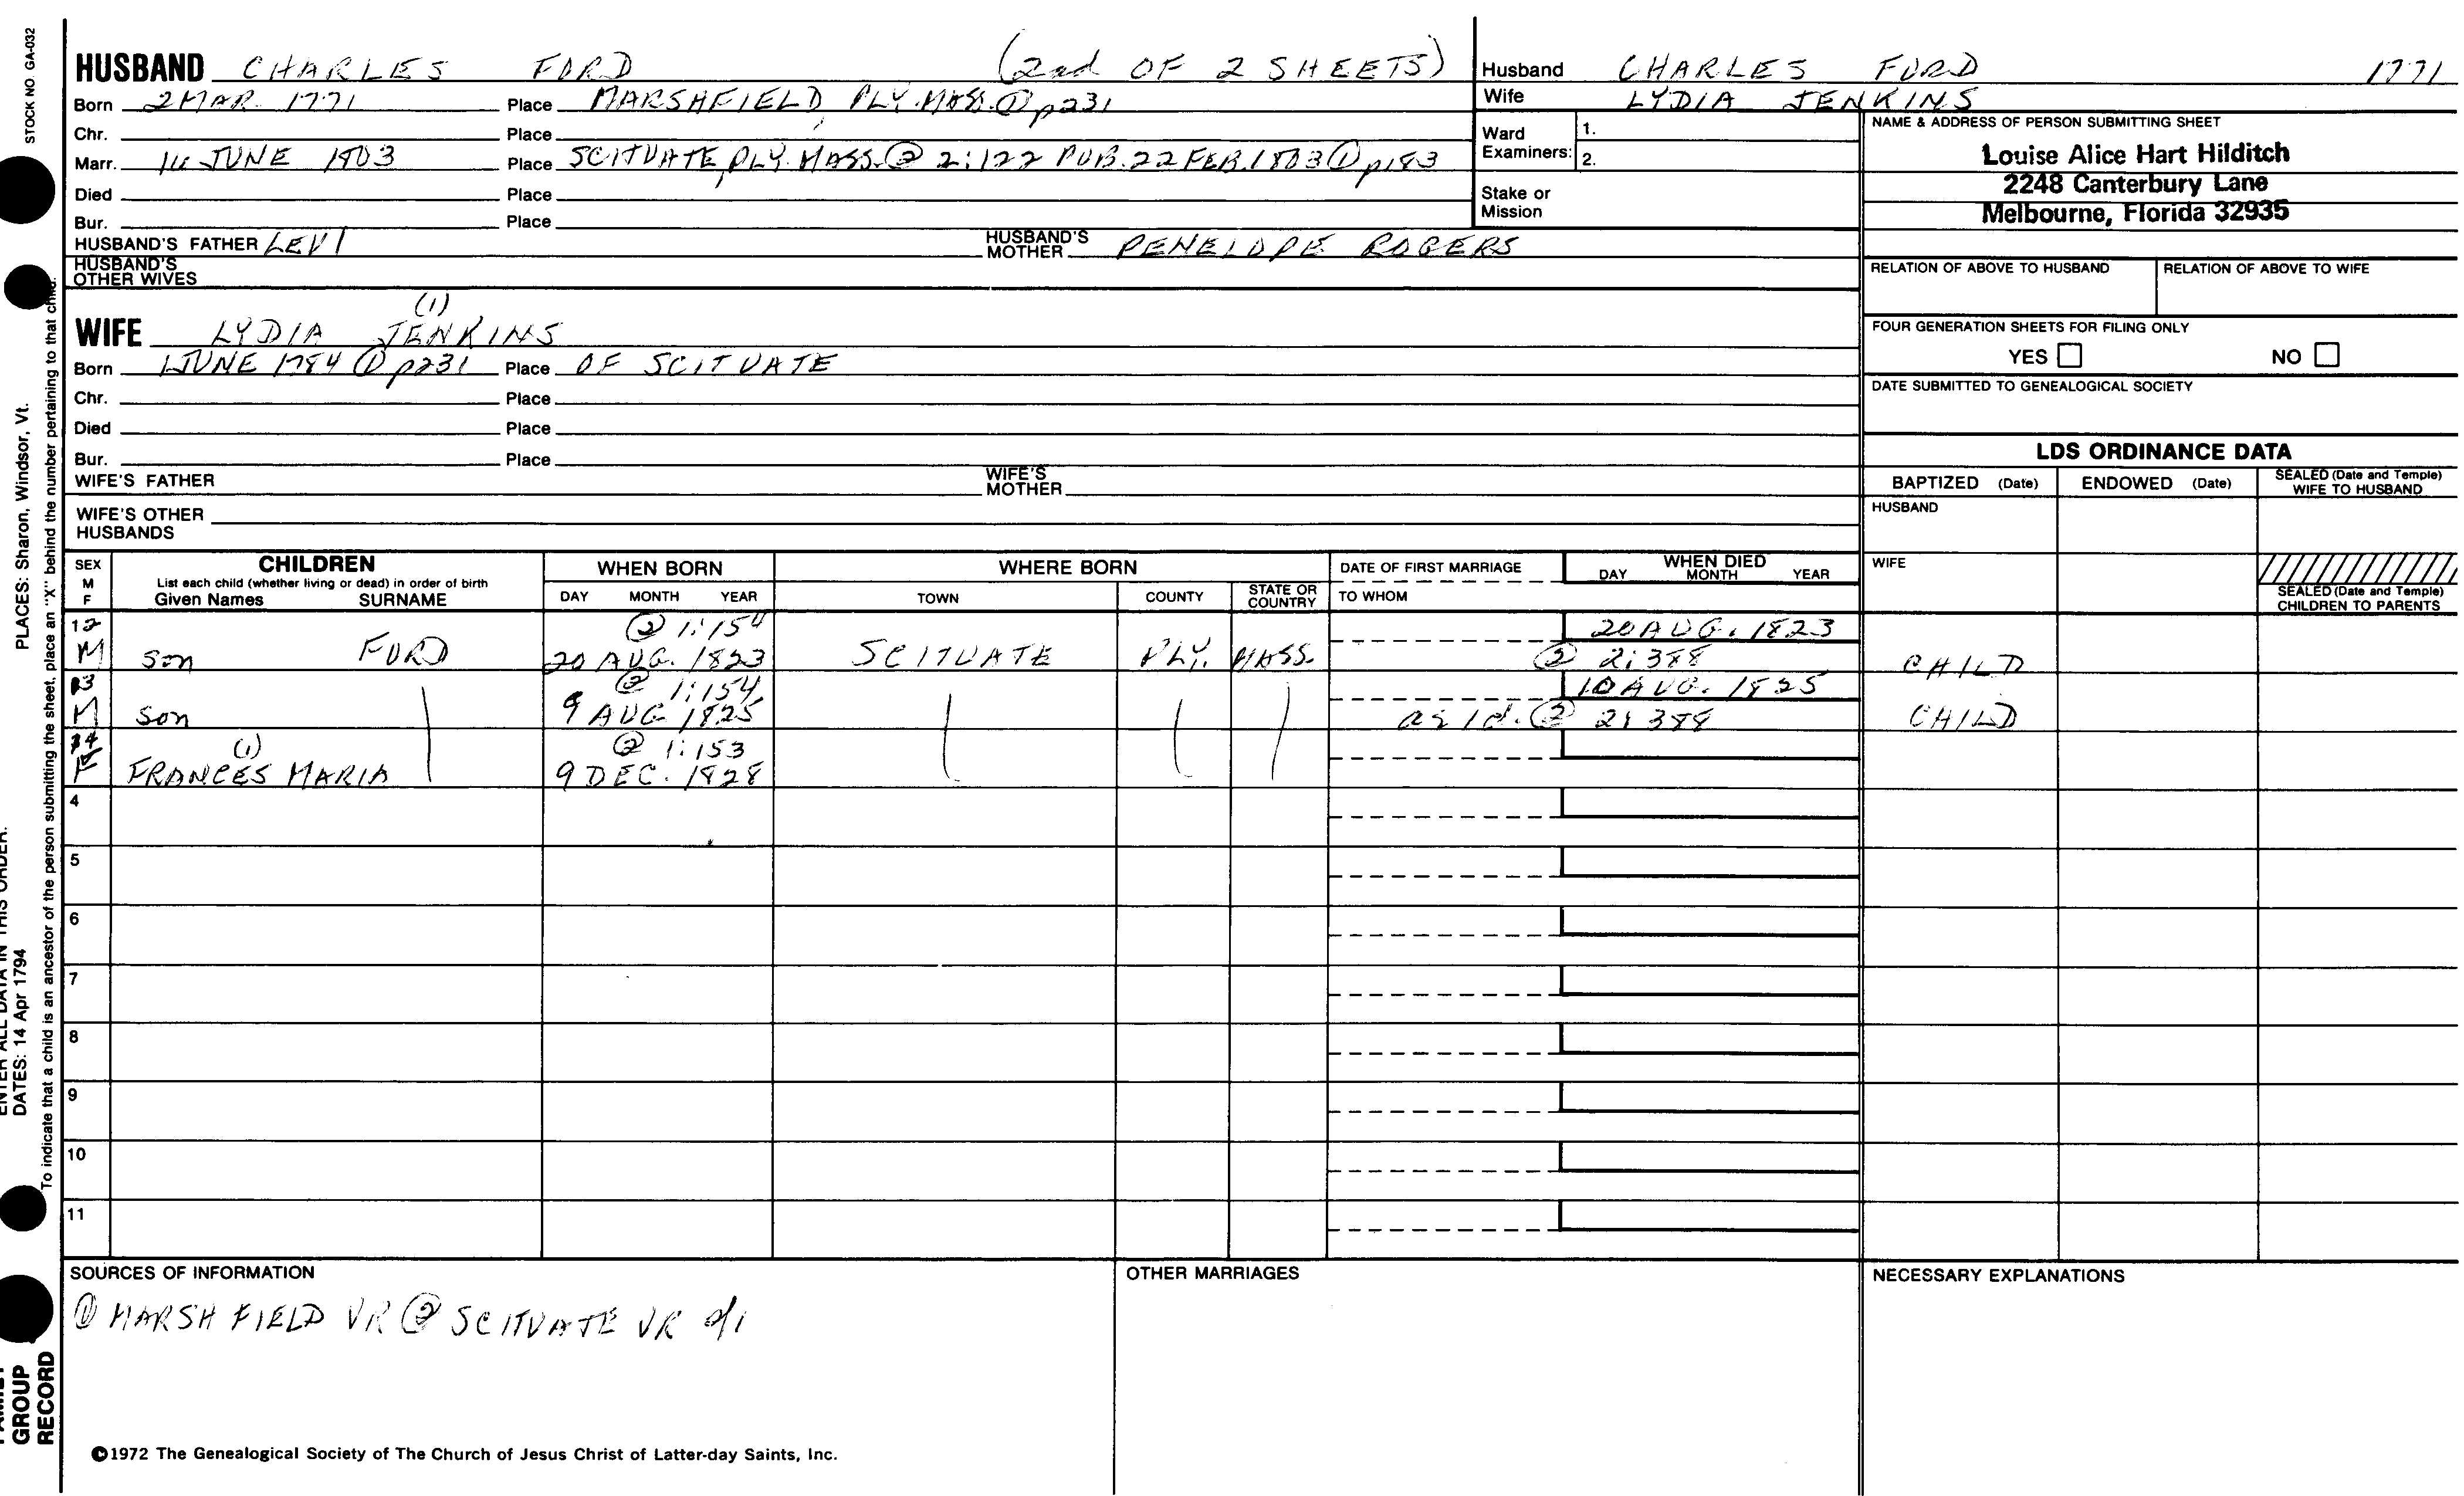 STOCK NO. GA-032
PLACES: Sharon, Windsor, Vt.
ENTER ALL DATA IN THIS ORDER:
DATES: 14 Apr 1794
To indicate that a child is an ancestor of the person submitting the sheet, place an "X" behind the number pertaining to that child.
FAMILY GROUP RECORD
HUSBAND CHARLES FORD (2nd OF 2 SHEETS)
Born 2 MAR. 1771 Place MARSHFIELD, PLY. MASS. ① p231
Chr. Place
Marr. 14 JUNE 1803 Place SCITUATE, PLY. MASS. ② 2:122 PUB. 22 FEB. 1803 ① p183
Died Place
Bur. Place
HUSBAND'S FATHER LEVI HUSBAND'S MOTHER PENELOPE ROGERS
HUSBAND'S OTHER WIVES
(1)
WIFE LYDIA JENKINS
Born 1 JUNE 1784 ① p231 Place OF SCITUATE
Chr. Place
Died Place
Bur. Place
WIFE'S FATHER WIFE'S MOTHER
WIFE'S OTHER HUSBANDS
Husband CHARLES FORD 1771
Wife LYDIA JENKINS
Ward Examiners: 1.
2.
Stake or Mission
NAME & ADDRESS OF PERSON SUBMITTING SHEET
Louise Alice Hart Hilditch
2248 Canterbury Lane
Melbourne, Florida 32935
RELATION OF ABOVE TO HUSBAND RELATION OF ABOVE TO WIFE
FOUR GENERATION SHEETS FOR FILING ONLY
YES NO
DATE SUBMITTED TO GENEALOGICAL SOCIETY
LDS ORDINANCE DATA
BAPTIZED (Date) ENDOWED (Date) SEALED (Date and Temple) WIFE TO HUSBAND
HUSBAND
WIFE
SEALED (Date and Temple) CHILDREN TO PARENTS
SEX M F CHILDREN WHEN BORN WHERE BORN DATE OF FIRST MARRIAGE WHEN DIED
List each child (whether living or dead) in order of birth
Given Names SURNAME DAY MONTH YEAR TOWN COUNTY STATE OR COUNTRY TO WHOM DAY MONTH YEAR
12 ② 1:154 20 AUG. 1823
M son FORD 20 AUG. 1823 SCITUATE PLY. MASS. ② 2:388 CHILD
13 ② 1:154 10 AUG. 1825
M son 9 AUG 1825 as 1d. ② 2:388 CHILD
14 (1) ② 1:153
F FRANCES MARIA 9 DEC. 1828
4
5
6
7
8
9
10
11
SOURCES OF INFORMATION
① MARSHFIELD VR ② SCITUATE VR
OTHER MARRIAGES
NECESSARY EXPLANATIONS
©1972 The Genealogical Society of The Church of Jesus Christ of Latter-day Saints, Inc.